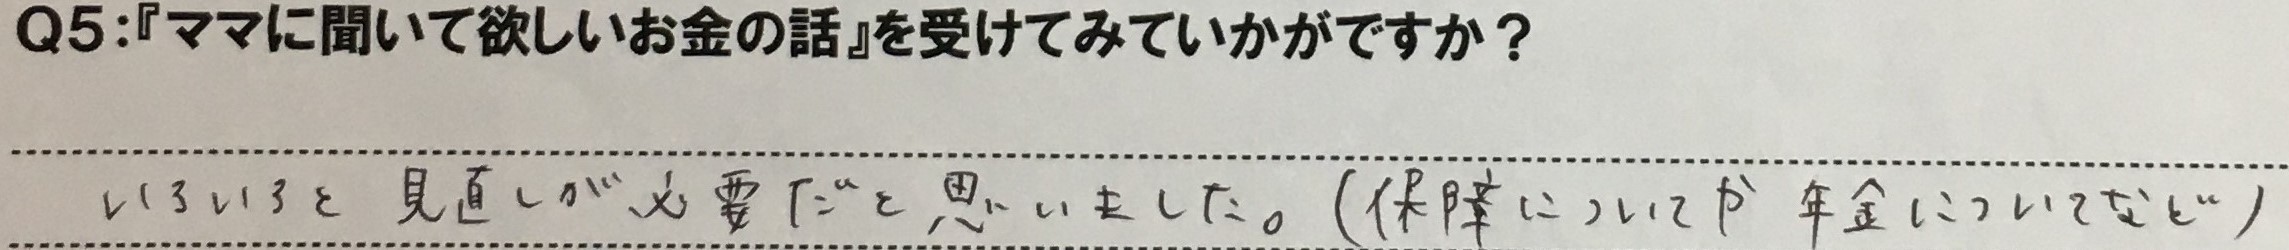 Q5:『ママに聞いて欲しいお金の話』を受けてみていかがですか？
いろいろと見直しが必要だと思いました。(保障についてや年金についてなど)